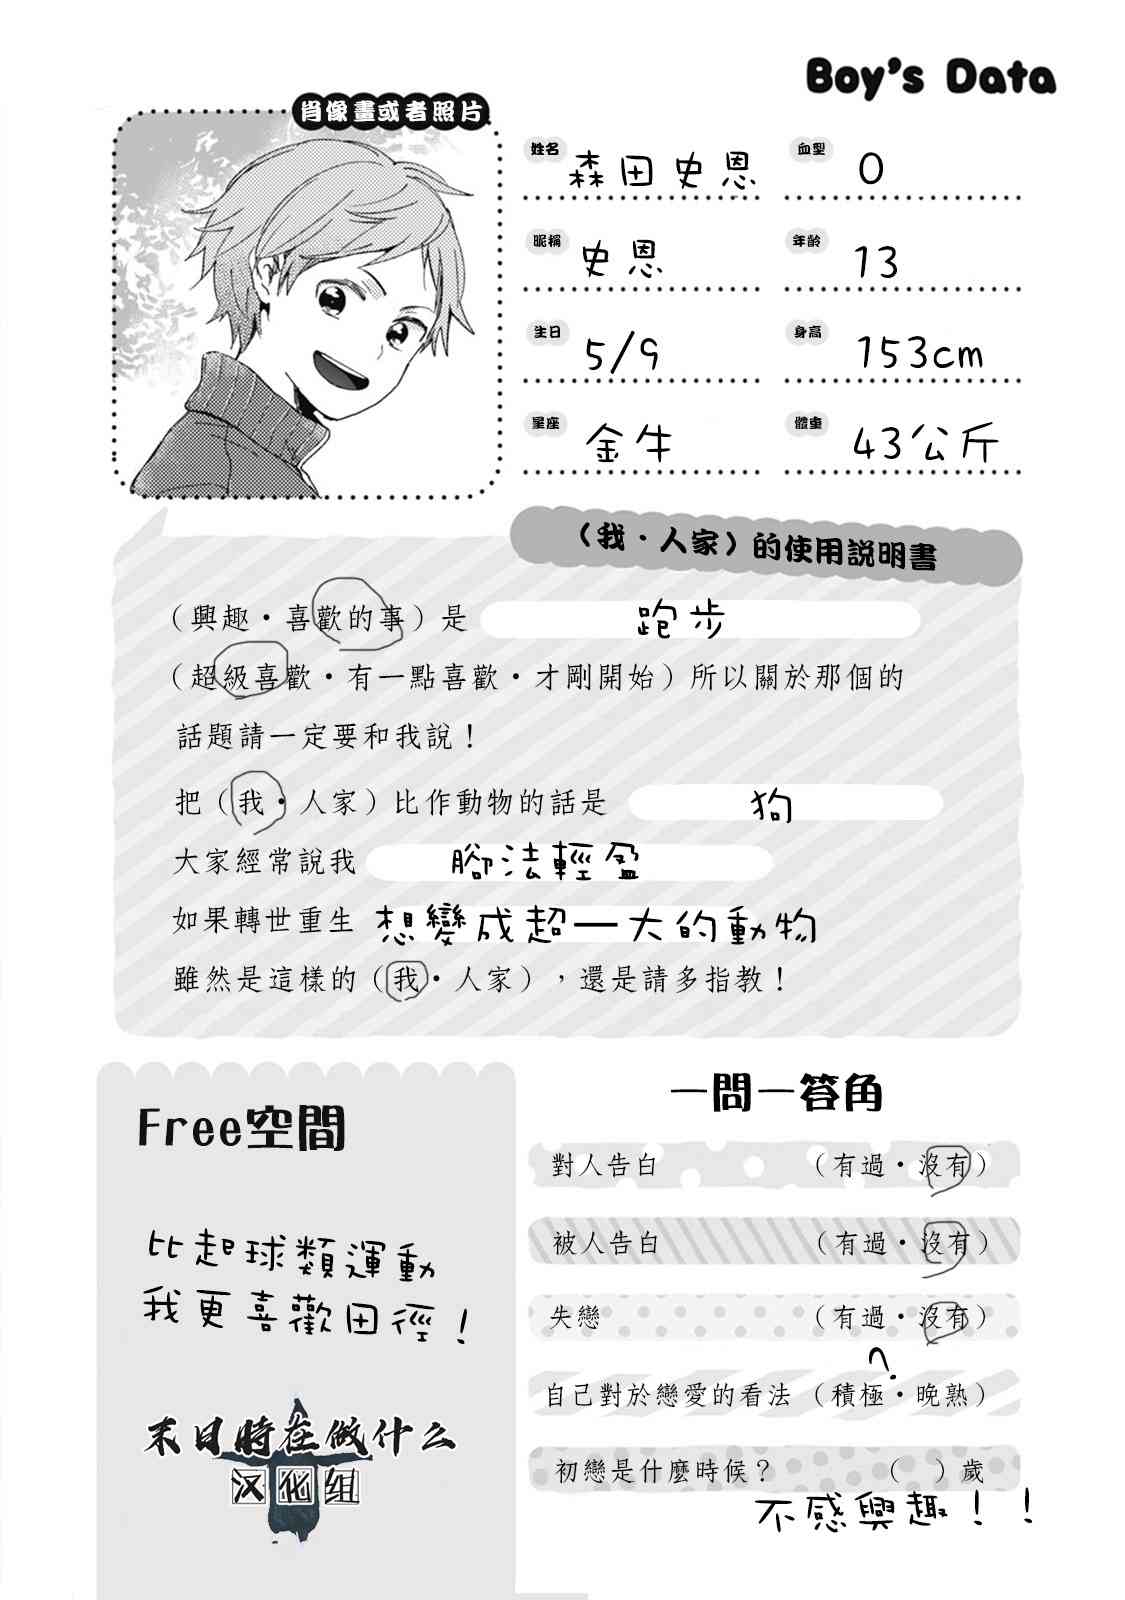 Boy's Data
肖像畫或者照片
姓名 森田史恩
血型 O
昵稱 史恩
年齡 13
生日 5/9
身高 153cm
星座 金牛
體重 43公斤
（我・人家）的使用說明書
（興趣・喜歡的事）是 跑步
（超級喜歡・有一點喜歡・才剛開始）所以關於那個的
話題請一定要和我說！
把（我・人家）比作動物的話是 狗
大家經常說我 腳法輕盈
如果轉世重生 想變成超一大的動物
雖然是這樣的（我・人家），還是請多指教！
Free空間
比起球類運動
我更喜歡田徑！
末日時在做什么
汉化组
一問一答角
對人告白 （有過・沒有）
被人告白 （有過・沒有）
失戀 （有過・沒有）
?
自己對於戀愛的看法（積極・晚熟）
初戀是什麼時候？ （ ）歲
不感興趣！！